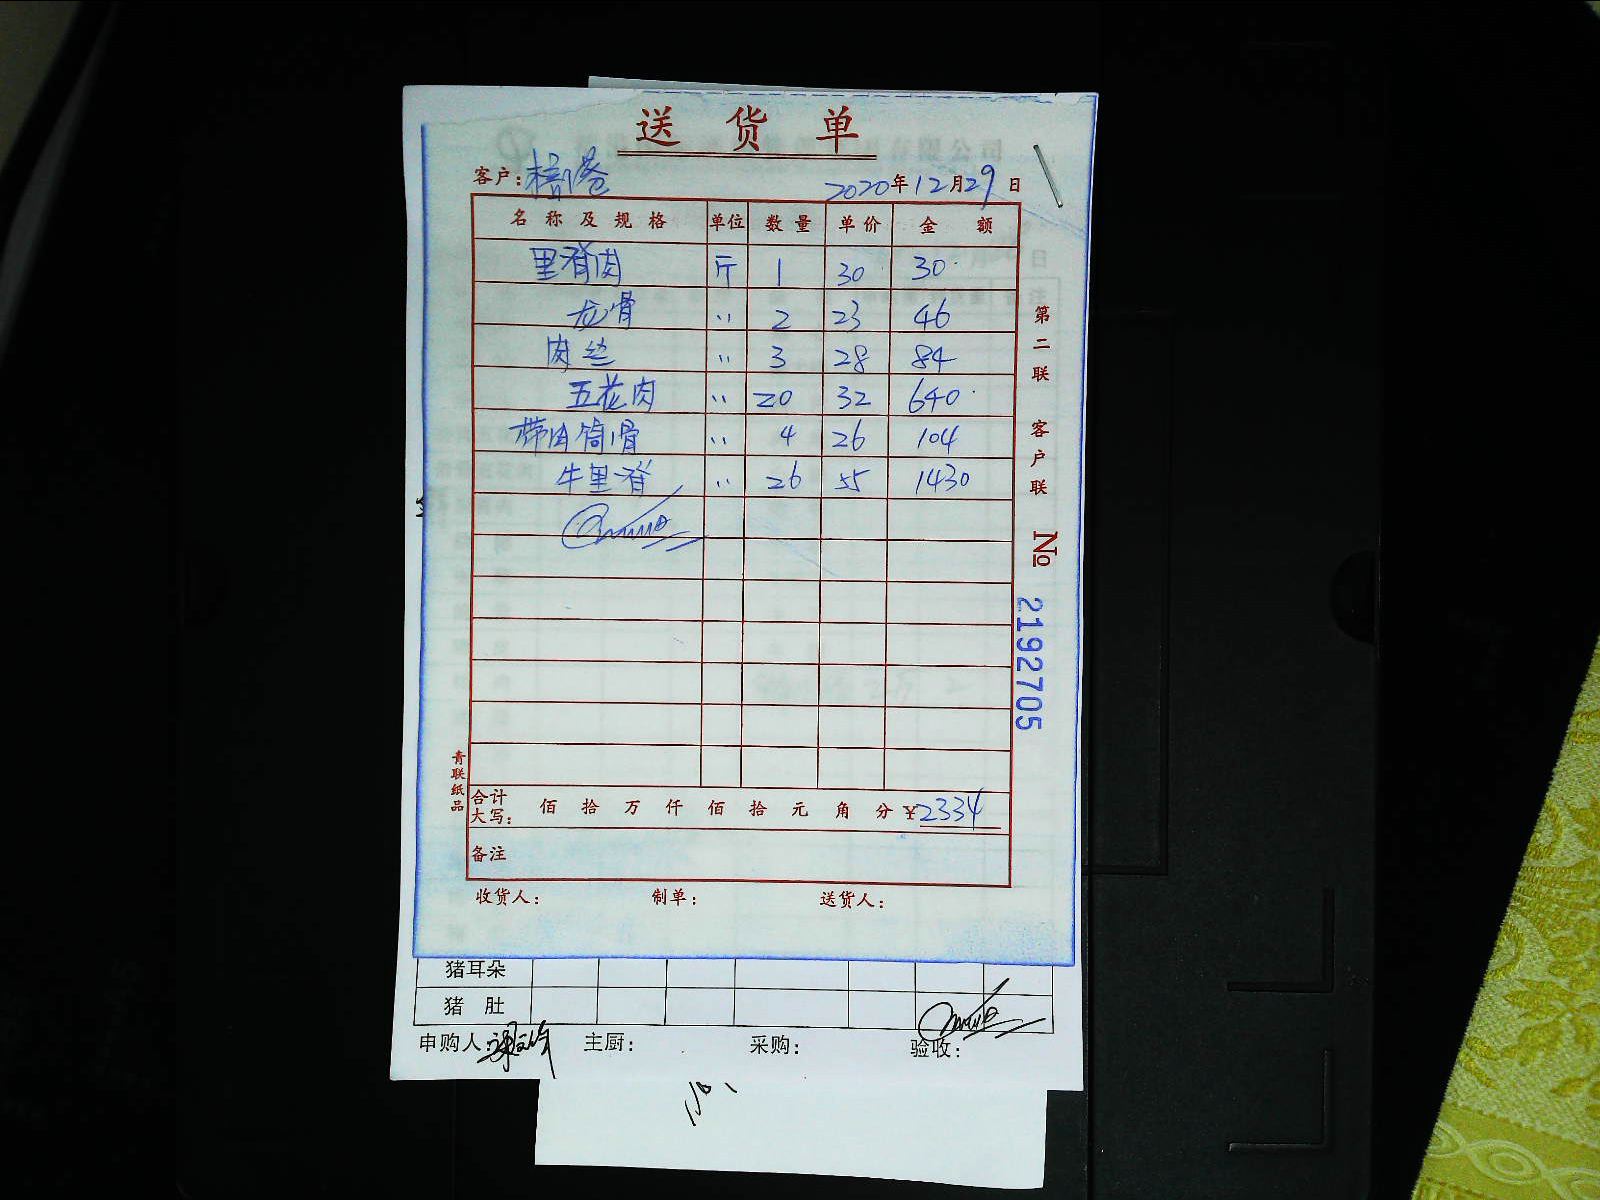 送货单
客户: 2020年12月29日
名称及规格 单位 数量 单价 金额
里脊肉 斤 1 30 30
龙骨 〃 2 23 46
肉丝 〃 3 28 84
五花肉 〃 20 32 640
带肉筒骨 〃 4 26 104
牛里脊 〃 26 55 1430
合计大写: 佰 拾 万 仟 佰 拾 元 角 分 ¥2334
备注
收货人: 制单: 送货人:
第二联 客户联
№ 2192705
青联纸品
猪耳朵
猪肚
申购人: 主厨: 采购: 验收: